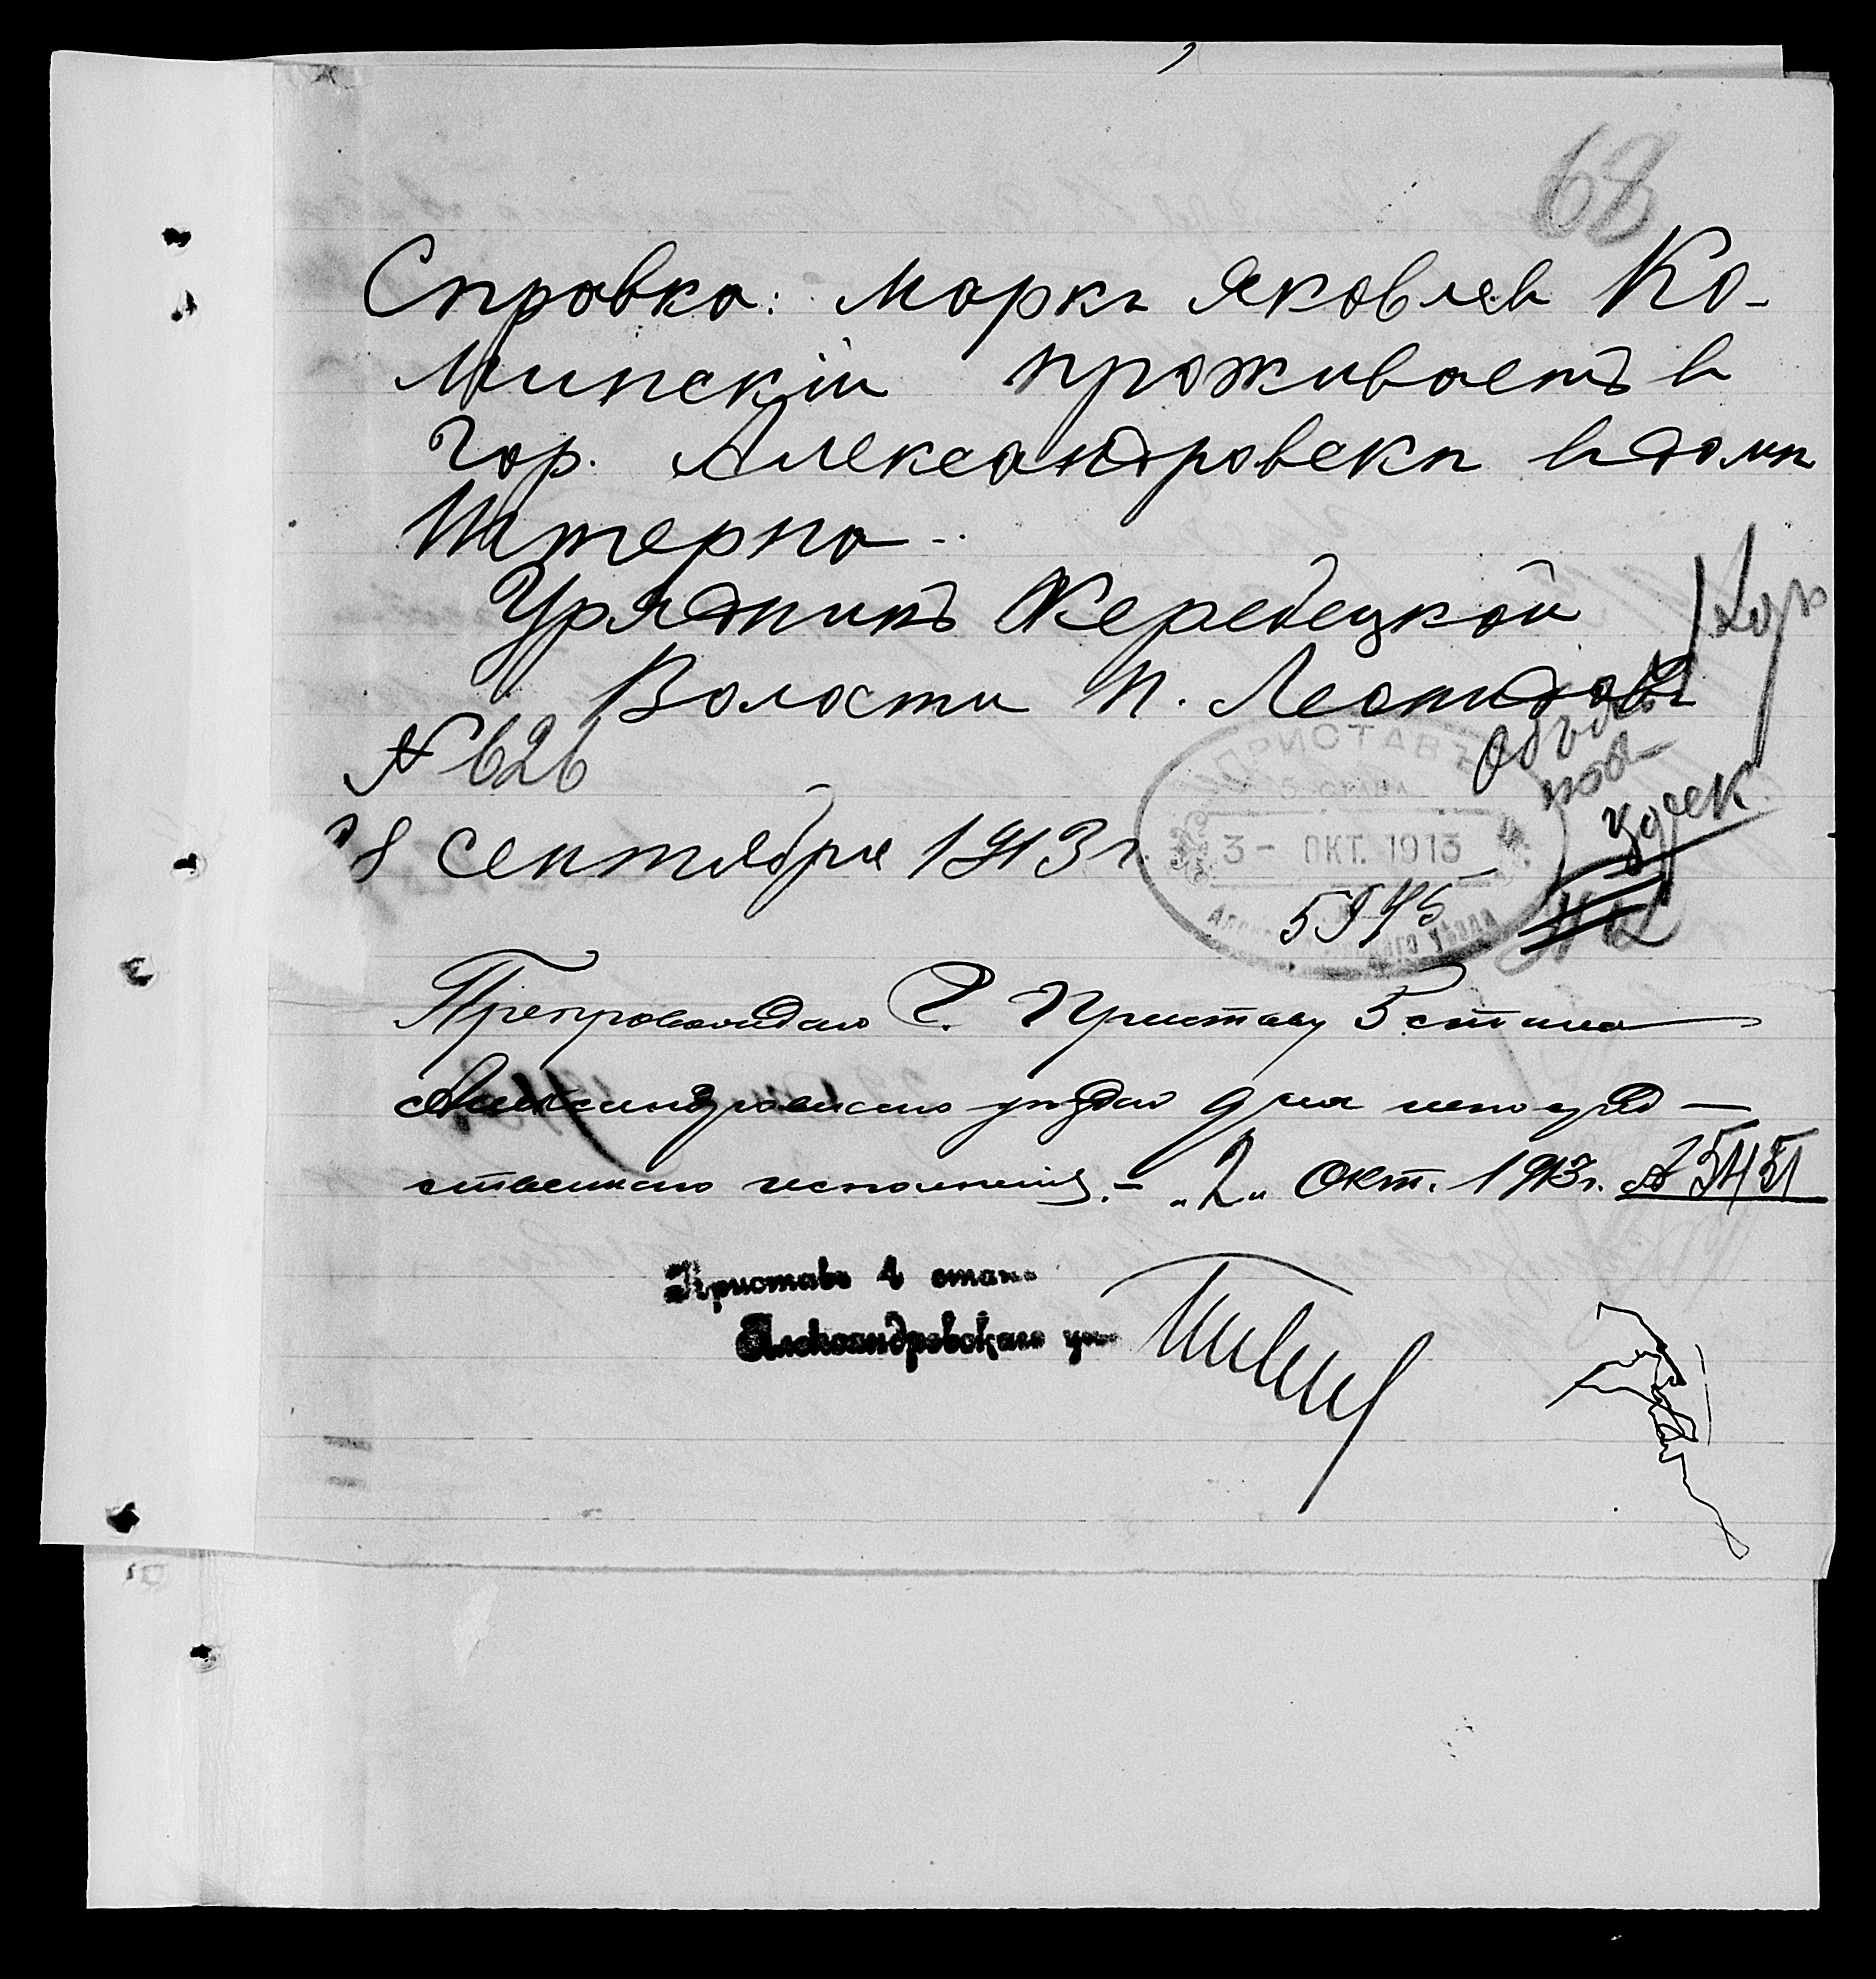 68
Справка: Маркъ Яковлевъ Ко-
минскій проживаетъ въ
гор. Александровскѣ въ домѣ
Штерна
Урядникъ Жеребецкой
Волости П. Леонидовъ
№ 626
28 Сентября 1913 г.
ПРИСТАВЪ
5 стана
3 - ОКТ. 1913
5945
Александровскаго уѣзда
Препровождаю Г. Приставу 5 стана
Александровскаго уѣзда для непосред-
ственнаго исполненія. - "2" Окт. 1913 г. № 5451
Приставъ 4 стана
Александровскаго уѣ